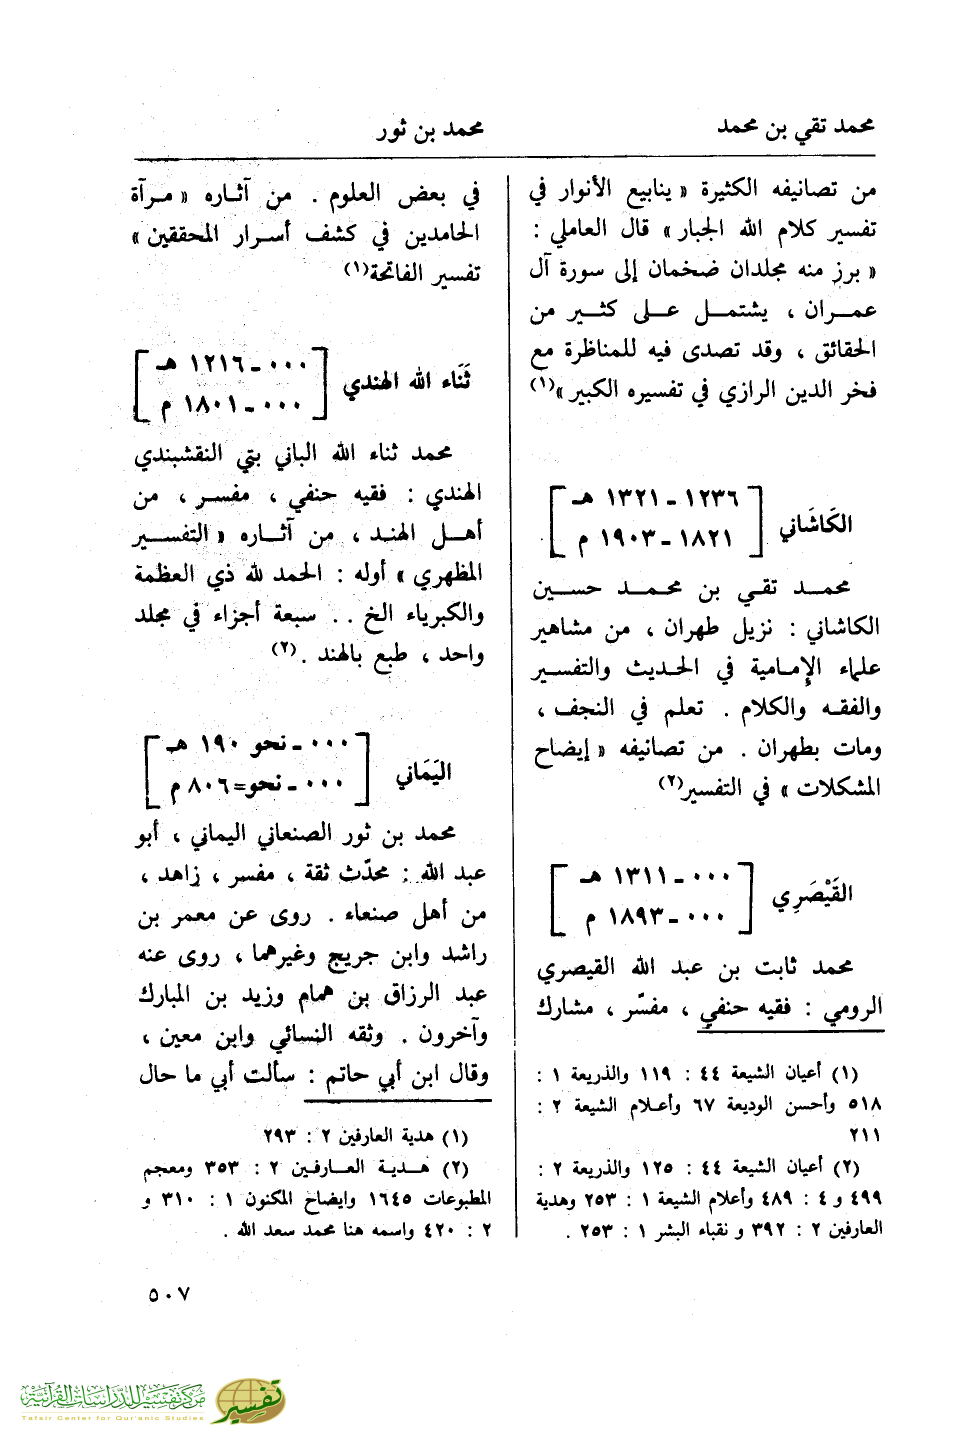 محمد تقي بن محمد
محمد بن ثور
من تصانيفه الكثيرة « ينابيع الأنوار في
تفسير كلام الله الجبار » قال العاملي :
« برز منه مجلدان ضخمان إلى سورة آل
عمــران ، يشتمــل علـى كثــير من
الحقائق ، وقد تصدى فيه للمناظرة مع
فخر الدين الرازي في تفسيره الكبير »(١)
الكَاشَاني
[ ١٢٣٦ - ١٣٢١ هـ
١٨٢١ - ١٩٠٣ م ]
محمــد تقـي بن محمــد حســين
الكاشاني : نزيل طهران ، من مشاهير
علماء الإمـامية في الحديث والتفســير
والفقـه والكلام . تعلم في النجف ،
ومات بطهران . من تصانيفه « إيضاح
المشكلات » في التفسير(٢)
القَيْصَرِي
[ ٠٠٠ - ١٣١١ هـ
٠٠٠ - ١٨٩٣ م ]
محمد ثابت بن عبد الله القيصري
الرومي : فقيه حنفي ، مفسّر ، مشارك
(١) أعيان الشيعة ٤٤ : ١١٩ والذريعة ١ :
٥١٨ وأحسن الوديعة ٦٧ وأعـلام الشيعة ٢ :
٢١١
(٢) أعيان الشيعة ٤٤ : ١٢٥ والذريعة ٢ :
٤٩٩ و ٤ : ٤٨٩ وأعلام الشيعة ١ : ٢٥٣ وهدية
العارفين ٢ : ٣٩٢ و نقباء البشر ١ : ٢٥٣ .
في بعض العلوم . من آثـاره « مـرآة
الحامدين في كشف أسـرار المحققين »
تفسير الفاتحة(١)
ثَنَاء الله الهندي
[ ٠٠٠ - ١٢١٦ هـ
٠٠٠ - ١٨٠١ م ]
محمد ثناء الله الباني بتي النقشبندي
الهندي : فقيه حنفي ، مفسـر ، من
أهـل الهنـد ، من آثـاره « التفسـير
المظهري » أوله : الحمد لله ذي العظمة
والكبرياء الخ . . سبعة أجزاء في مجلد
واحد ، طبع بالهند .(٢)
اليَمَاني
[ ٠٠٠ - نحو ١٩٠ هـ
٠٠٠ - نحو= ٨٠٦ م ]
محمد بن ثور الصنعاني اليماني ، أبو
عبد الله : محدّث ثقة ، مفسر ، زاهد ،
من أهل صنعاء . روى عن معمر بن
راشد وابن جريج وغيرهما ، روى عنه
عبد الرزاق بن همام وزيد بن المبارك
وآخرون . وثقه النسائي وابن معين ،
وقال ابن أبي حاتم : سألت أبي ما حال
(١) هدية العارفين ٢ : ٢٩٣
(٢) هـديـة العـارفين ٢ : ٣٥٣ ومعجم
المطبوعات ١٦٤٥ وايضاح المكنون ١ : ٣١٠ و
٢ : ٤٢٠ واسمه هنا محمد سعد الله .
٥٠٧
مركز تفسير للدراسات القرآنية
Tafsir Center for Qur'anic Studies
تفسير